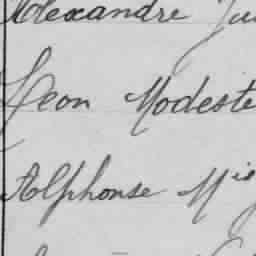 Alexandre
Leon Modeste
Alphonse Mis